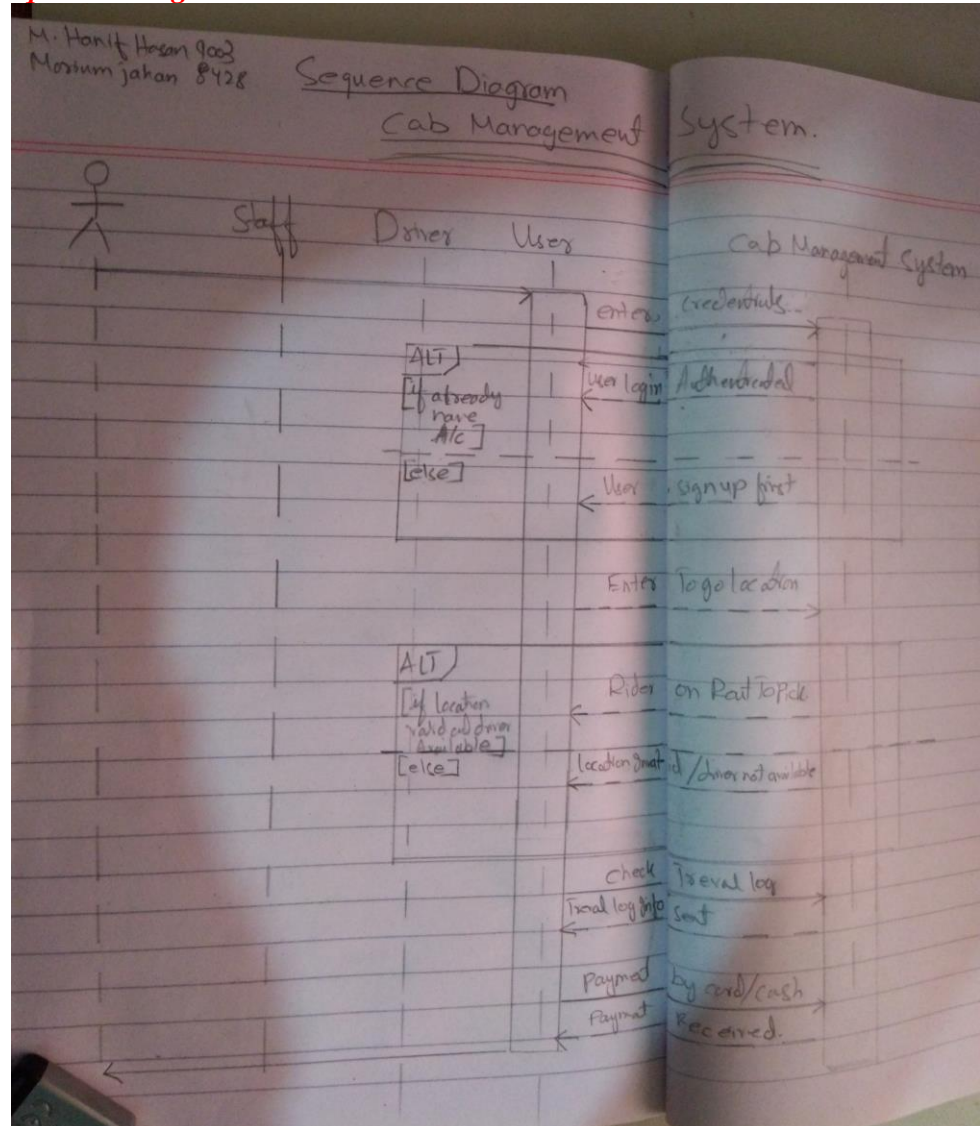 M. Hanif Hasan 9003
Morium jahan 8428
Sequence Diagram
Cab Management System.
Staff
Driver
User
Cab Management System
enter credentials..
ALT
[if already
have
A/c]
User login Authenticated
[else]
User signup first
Enter Togo location
ALT
[if location
valid and driver
Available]
Rider on
[else]
location /driver not available
check Treval log
Treval log Info sent
Payment by card/cash
Payment Received.